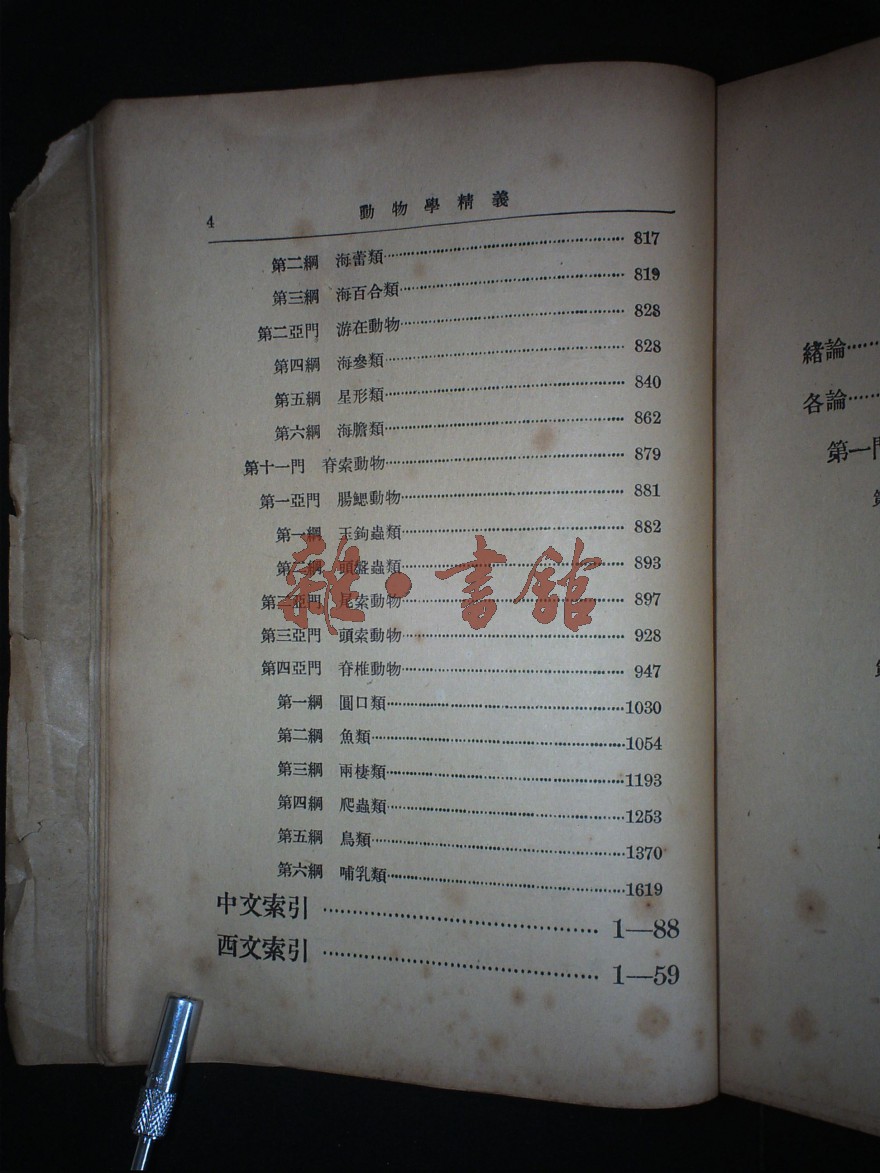 4 動物學精義
第二綱 海蕾類 817
第三綱 海百合類 819
第二亞門 游在動物 828
第四綱 海參類 828
第五綱 星形類 840
第六綱 海膽類 862
第十一門 脊索動物 879
第一亞門 腸鰓動物 881
第一綱 玉鉤蟲類 882
第二綱 頭盤蟲類 893
第二亞門 尾索動物 897
第三亞門 頭索動物 928
第四亞門 脊椎動物 947
第一綱 圓口類 1030
第二綱 魚類 1054
第三綱 兩棲類 1193
第四綱 爬蟲類 1253
第五綱 鳥類 1370
第六綱 哺乳類 1619
中文索引 1—88
西文索引 1—59
雜·書館
緒論
各論
第一門